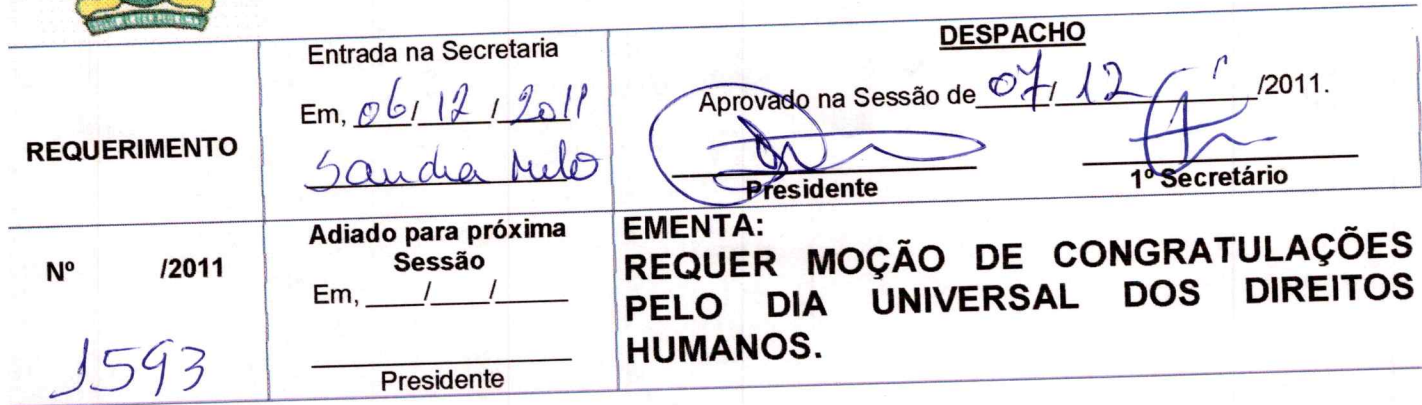 REQUERIMENTO
Entrada na Secretaria
Em, 06/ 12 / 2011
Sandra Melo
DESPACHO
Aprovado na Sessão de 07/ 12 /2011.
Presidente
1º Secretário
Nº /2011
1593
Adiado para próxima
Sessão
Em, ____/____/_____
Presidente
EMENTA:
REQUER MOÇÃO DE CONGRATULAÇÕES
PELO DIA UNIVERSAL DOS DIREITOS
HUMANOS.